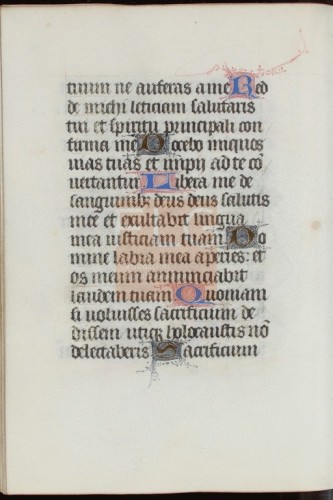 tuum ne auferas a me Red
de michi leticiam salutaris
tui et spiritu principali con
firma me Docebo iniquos
uias tuas et impii ad te cō
uertantur Libera me de
sanguinibz deus deus salutis
mee et exultabit lingua
mea iusticiam tuam Do
mine labia mea aperies : et
os meum annunciabit
laudem tuam Quoniam
si uoluisses sacrificium de
dissem utiqz holocaustis nō
delectaberis Sacrificium